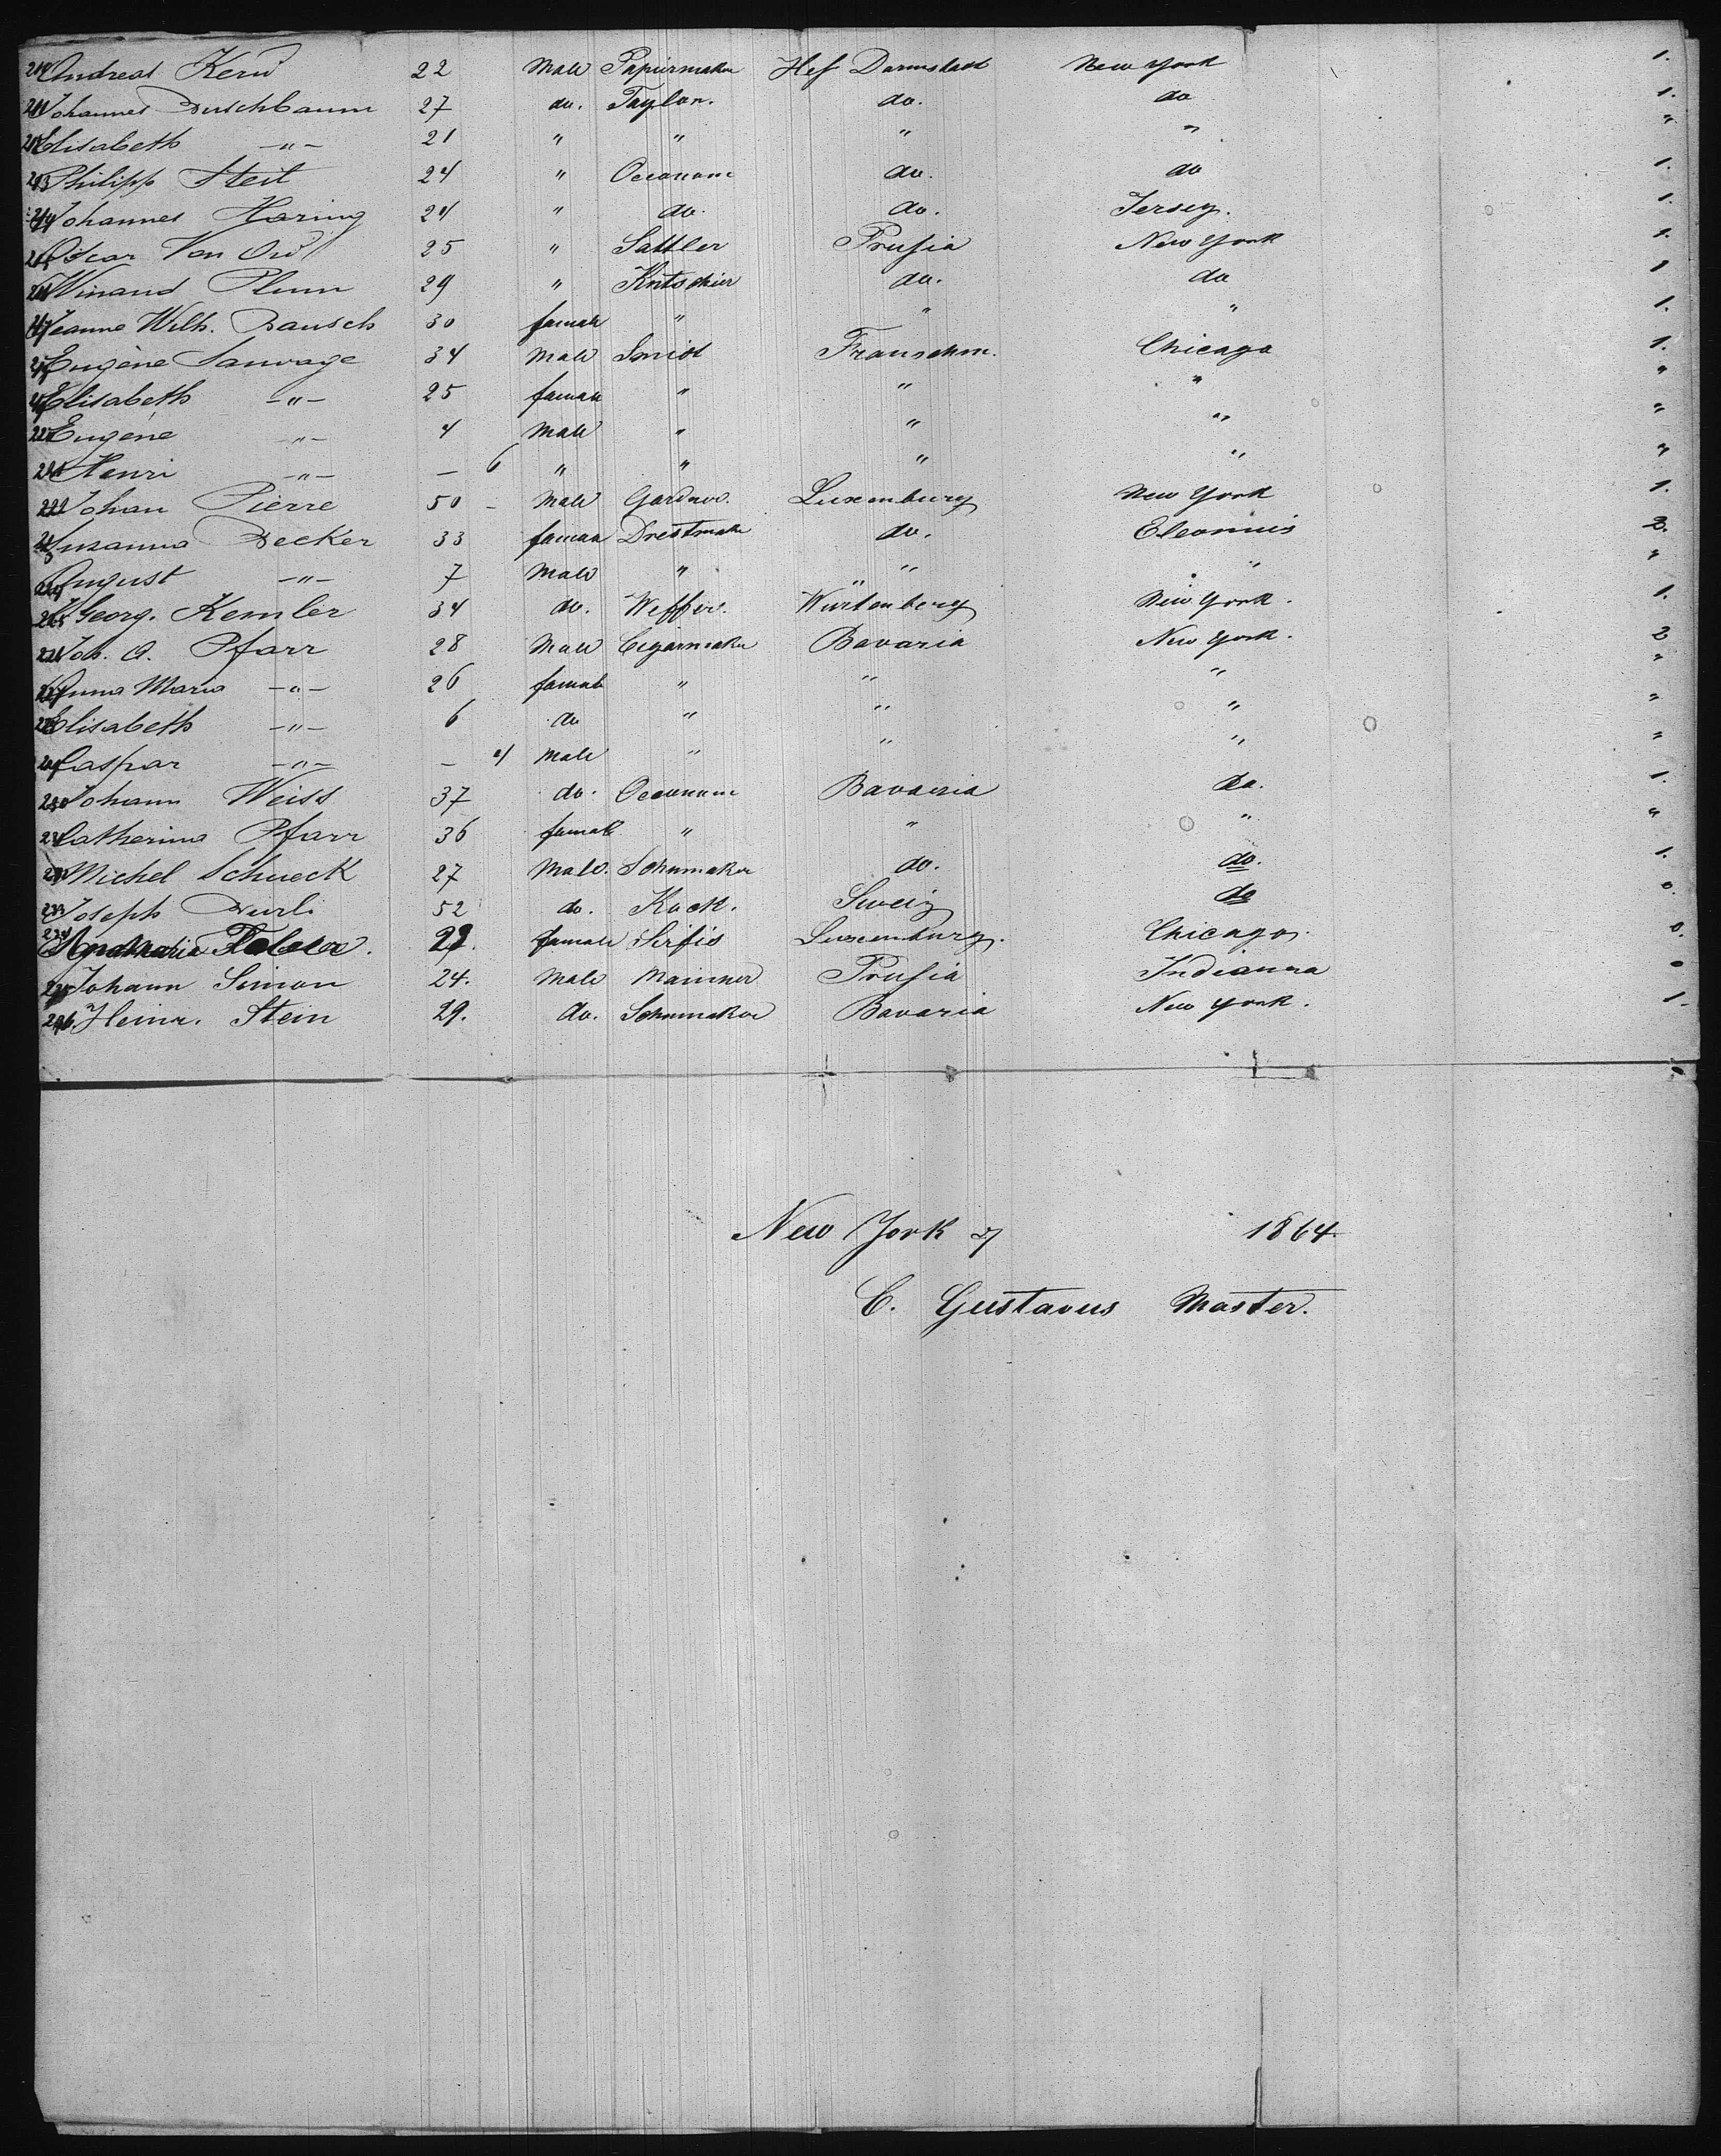 210 Andreas Kern 22 Male Papiermaker Hes Darmstadt New York 1.
211 Johannes Buschbaum 27 do. Taylor. do. do 1.
212 Elisabeth -"- 21 " " " " "
213 Philipp Steil 24 " Oeconom do. do 1.
214 Johannes Haring 24 " do. do. Jersey. 1.
215 Oscar Von Ow 25 " Sattler Prusia New York 1.
216 Winand Plum 29 " do. do 1
217 Jeanne Wilh. Bausch 30 famale " " " 1.
218 Eugène Sauvage 34 Male Smidt Franschm. Chicago 1.
219 Elisabeth -"- 25 famale " " " "
220 Eugène -"- 4 Male " " " "
221 Henri -"- – 6 " " " " "
222 Johan Pierre 50 – Male Gardner. Luxemburg New York 1.
223 Susanna Becker 33 famale Drestmaker do. Eleonuis 2.
224 August -"- 7 Male " " " "
225 Georg. Kemler 34 do. Weffer. Wurtenberg New York. 1.
226 Joh. A. Pfarr 28 Male Cigarmaker Bavaria New York. 2
227 Anna Maria -"- 26 famale " " " "
228 Elisabeth -"- 6 do " " " "
229 Caspar -"- – 4 Male " " " "
230 Johann Weiss 37 do. Oeconom Bavaria do. 1.
231 Catherina Pfarr 36 famale " " " "
232 Michel Schueck 27 Male. Schumaker do. do. 1.
233 Joseph Durli 52 do. Kock. Sweiz do 0.
234 famale Luxemburg. Chicago. 0.
235 Johann Simon 24. Male Mainner Prusia Indianna 0
236. Heinr. Stein 29. do. Schumaker Bavaria New York. 1.
New York 1864.
C. Gustavus Master.